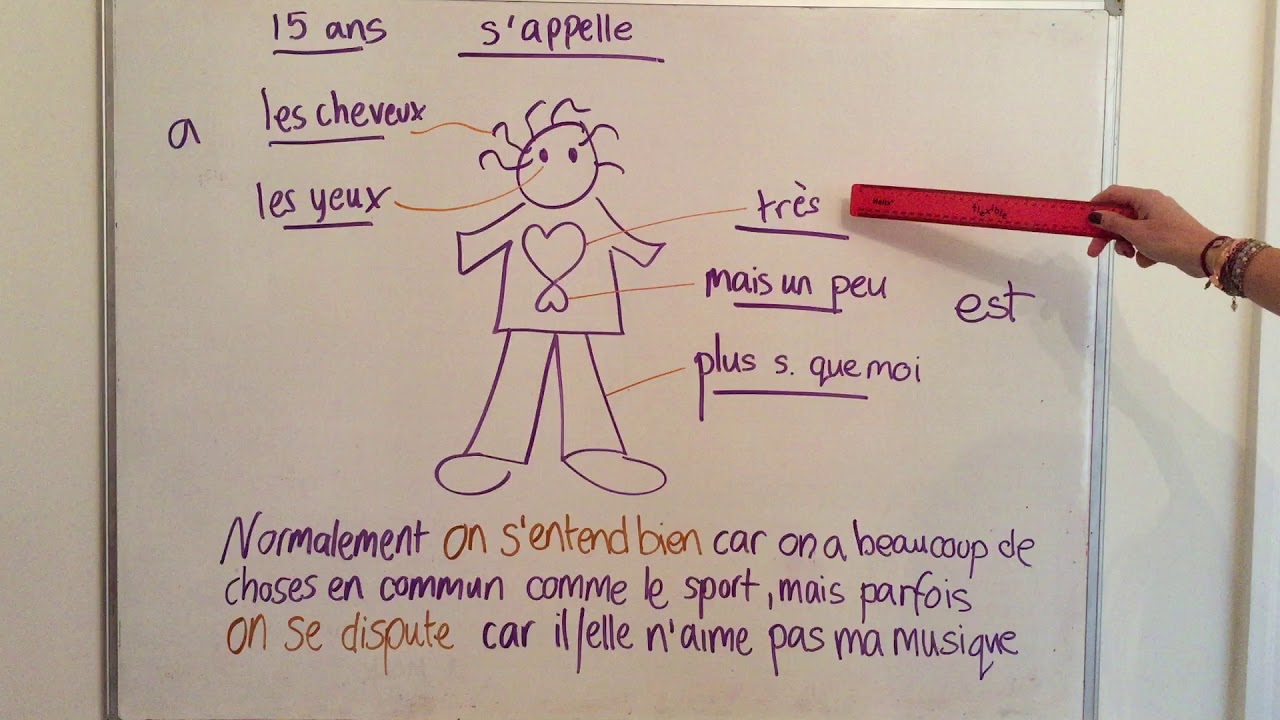 15 ans s'appelle
a
les cheveux
les yeux
très
Helix flexible
mais un peu
est
plus s. que moi
Normalement on s'entend bien car on a beaucoup de
choses en commun comme le sport, mais parfois
on se dispute car il/elle n'aime pas ma musique